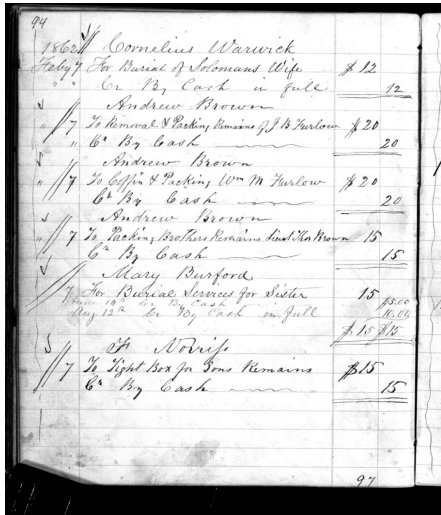 94
1862 Cornelius Warwick
Feby 7 For Burial of Solomans Wife $12
" " Cr By Cash in full 12
Andrew Brown
" 7 To Removal & Packing Remains of J B Furlow $20
" Cr By Cash 20
Andrew Brown
" 7 To Coffin & Packing Wm M Furlow $20
Cr By Cash 20
Andrew Brown
" 7 To Packing Brothers Remains Lieut Thos Brown 15
Cr By Cash 15
Mary Burford
7 For Burial Services for Sister 15
June 19th Cr By Cash $5.00
Aug 12th Cr By Cash in full 10.00
$15 $15
Norriss
7 To Tight Box for Sons Remains $15
Cr By Cash 15
97